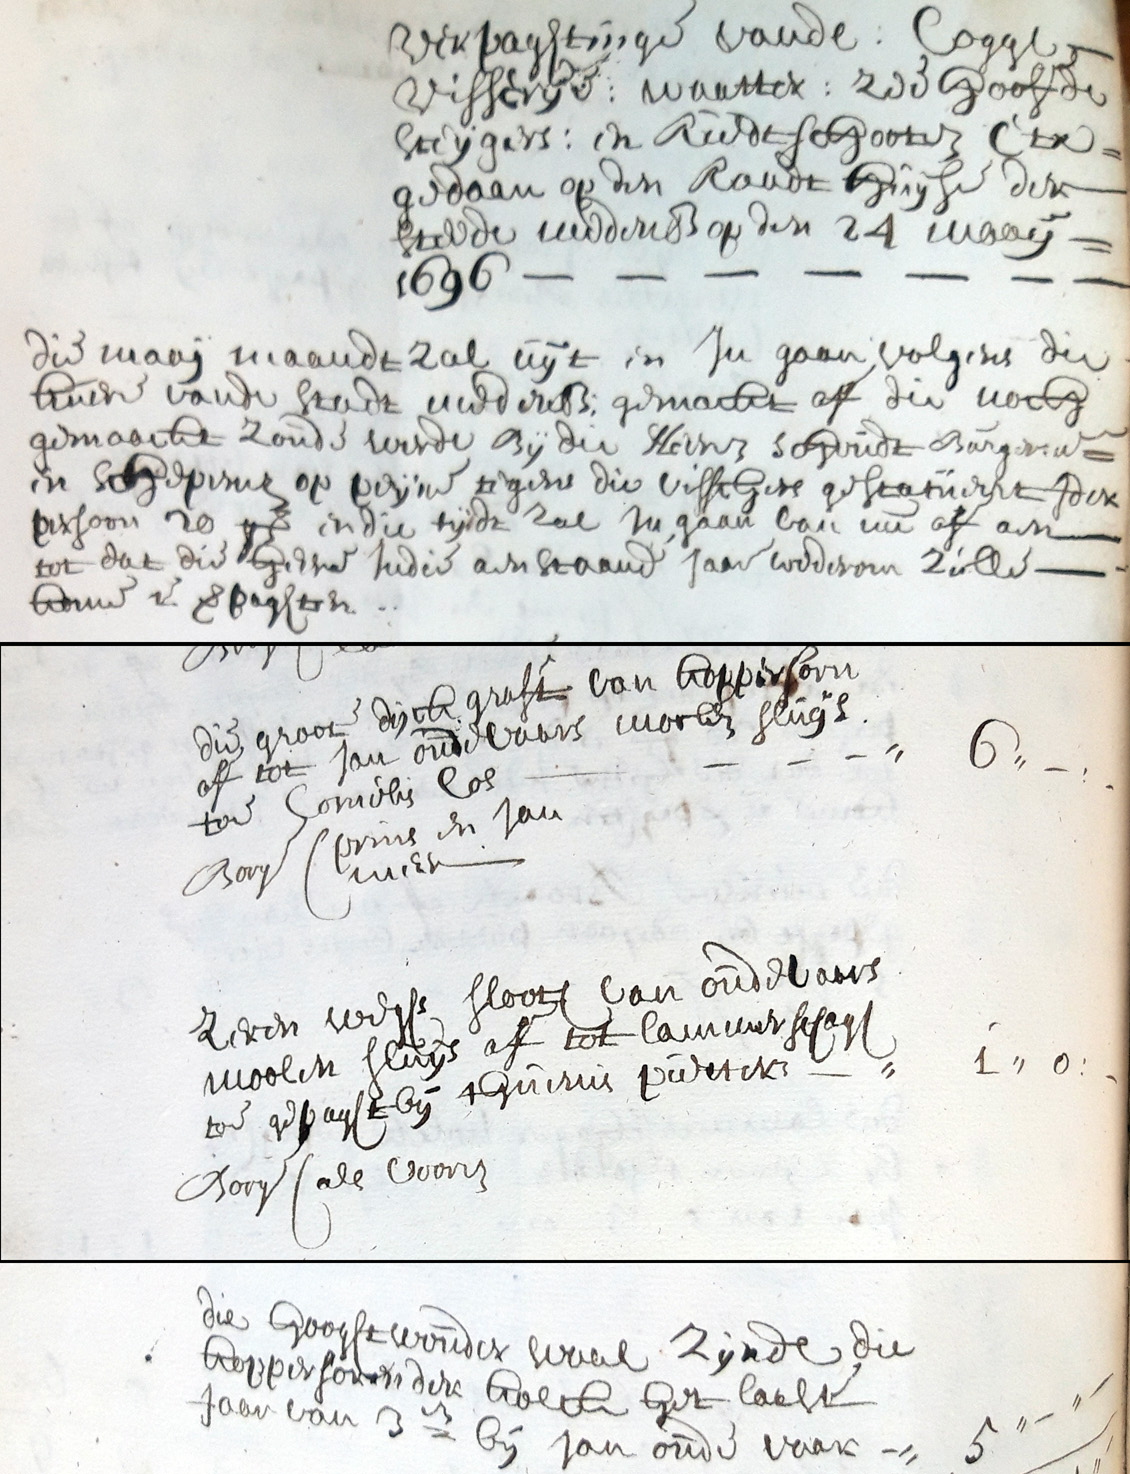 Verpagstinge vande: Cogge
Visserije: waatter: Zde Hooffde
steijgers: in Riedtschooten Etr
gedaan op den Raadt Huijse der
stede meddenb op den 24 maaij
1696
die maaij maandt zal uijt in In gaan volgens die
kuere vande stadt meddenb: gemackt off die noch
gemaackt zoude werde Bij die Heeren schoudt Burgemr
in schepenen op peijne tegens die visschers gestatueert Ider
persoon 20 in die tijdt zal In gaan van nu af aen
tot dat die Heere Indie aenstaande Jaar wederom zulle
kome te verpagten
Borg
die groote dijck graft van koppershorn
af tot Jan oudevaars moolen sluijs
toe Cornelis Cos 6,, - :
Borg prins en Jan
meer
Zeven wegs sloot van oudevaars
moolen sluijs aff tot lammerschaag
toe gepagst bij theunis pietersz 1 ,, 0:
Borg als vooren
die Hoogstwouder waal Zijnde die
koppershorner kolck het laeste
Jaar van 3 bij Jan oude vaar 5 ,, - ,,